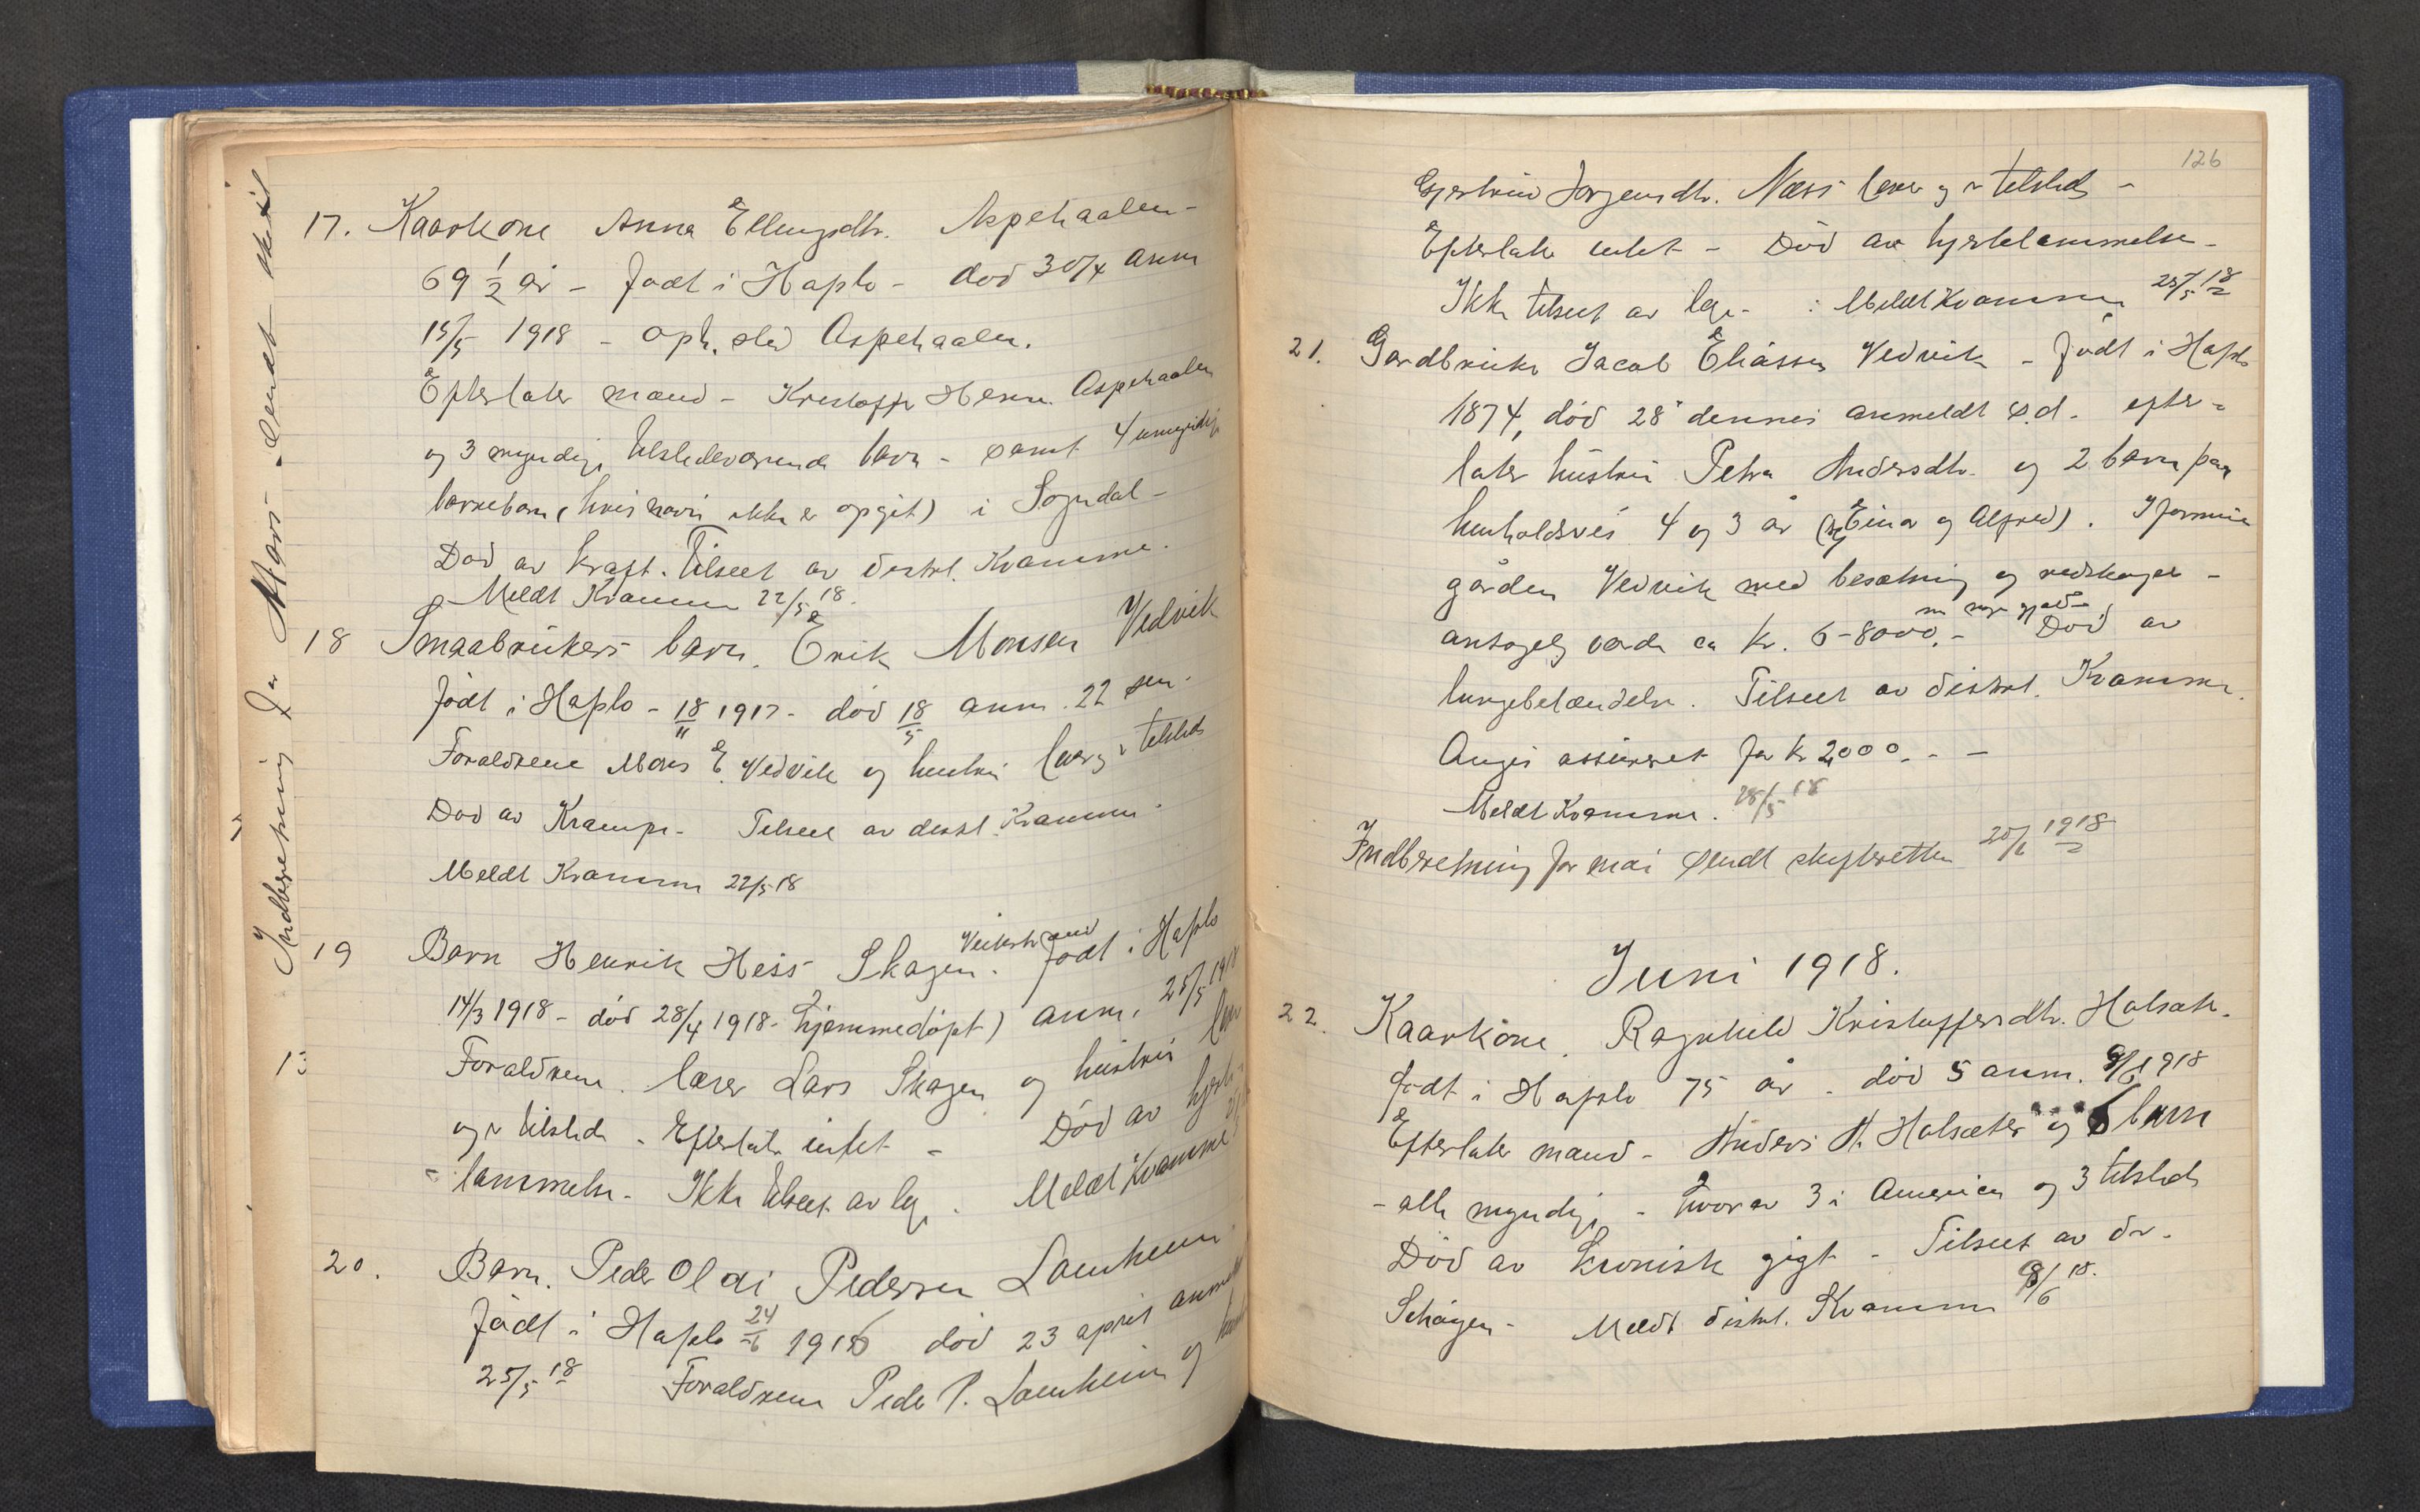 17. Kaarkone Anna Ellingsdtr. Aspehaalen -
69 1/2 år - født i Hafslo - død 30/4 anm
15/5 1918 - oph. sted Aspehaalen.
Efterlater mand - Kristoffer Henr. Aspehaalen
og 3 myndige tilstedeværende barn - samt 4 umyndige
barnebarn (hvis navn ikke er opgit) i Sogndal -
Død av kræft. Tilseet av distrl. Kvamme.
Meldt Kvamme 22/5 18.
18 Smaabrukers barn. Erik Monsen Vedvik
født i Hafslo - 18/11 1917 - død 18/5 anm. 22 sm.
Forældrene Mons E. Vedvik og hustru lever og er tilsteds
Død av Krampe - Tilseet av distl. Kvamme -
Meldt Kvamme 22/5 18
19 Barn Henrik Hess Skagen. Veitastrand født i Hafslo
14/3 1918 - død 28/4 1918 - hjemmedøpt) anm. 25/5 1918
Forældrene. lærer Lars Skagen og hustru lever
og er tilstede - Efterlater intet - Død av hjerte-
= lammelse - Ikke tilseet av læge. Meldt Kvamme
20. Barn. Peder Olai Pedersen Lanheim
født i Hafslo 24/6 1916 død 23 april anmeldt
25/5 18 Forældrene Peder P. Lanheim og hustru
Indberetning for Mars - sendt
13
126
Gjertrud Jørgensdtr. Næss lever og er tilsteds -
Efterlater intet - Død av hjertelammelse -
Ikke tilseet av læge - : Meldt Kvamme 25/5 18
21. Gardbruker Jacob Eliassen Vedvik - født i Hafslo
1874, død 28' dennes anmeldt s.d. efter-
later hustru Petra Andersdtr. og 2 barn paa
henholdsvis 4 og 3 år (Einar og Alfred). I formue
gården Vedvik med besætning og redskaper -
antagelig værdi ca kr. 6-8000.- men noget gjæld - Død av
lungebetændelse. Tilseet av distrl. Kvamme.
Angis assureret for kr 2,000. - -
Meldt Kvamme. 28/5 18
Indberetning for mai sendt skifteretten 20/6 1918
Juni 1918.
22. Kaarkone. Ragnhild Kristoffersdtr. Halsæter.
født i Hafslo 75 år - død 5 anm. 8/6 1918
Efterlater mand - Anders A. Halsæter og 6 barn
- alle myndige - hvorav 3 i America og 3 tilsteds
Død av kronisk gigt - Tilseet av dr.
Schøyen - Meldt distrl. Kvamme 8/6 18.